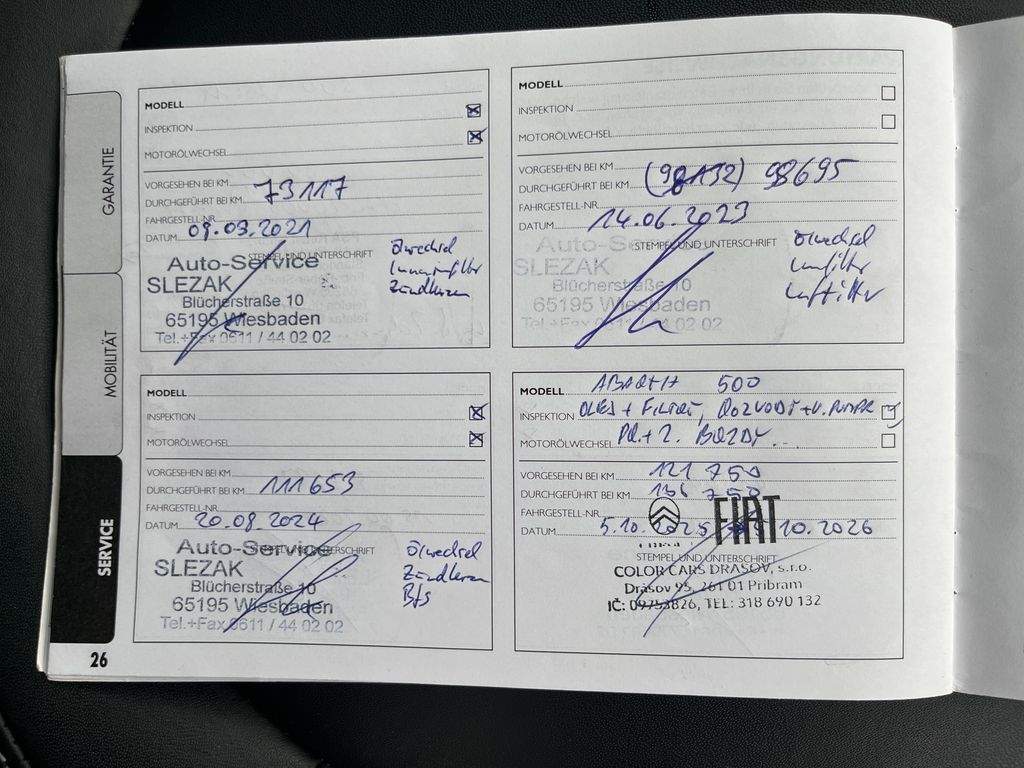 GARANTIE
MOBILITÄT
SERVICE
26
MODELL
INSPEKTION
MOTORÖLWECHSEL
VORGESEHEN BEI KM
DURCHGEFÜHRT BEI KM 73117
FAHRGESTELL-NR.
DATUM 09.03.2021
STEMPEL UND UNTERSCHRIFT
Auto-Service
SLEZAK
Blücherstraße 10
65195 Wiesbaden
Tel.+Fax 0611 / 44 02 02
Ölwechsel
Innenfilter
Zündkerzen
MODELL
INSPEKTION
MOTORÖLWECHSEL
VORGESEHEN BEI KM
DURCHGEFÜHRT BEI KM (98132) 98695
FAHRGESTELL-NR.
DATUM 14.06.2023
STEMPEL UND UNTERSCHRIFT
Auto-Se
SLEZAK
Blücherstraße 10
65195 Wiesbaden
Tel.+Fax 0611 / 44 02 02
Ölwechsel
Luftfilter
MODELL
INSPEKTION
MOTORÖLWECHSEL
VORGESEHEN BEI KM
DURCHGEFÜHRT BEI KM 111653
FAHRGESTELL-NR.
DATUM 20.09.2024
UNTERSCHRIFT
Auto-Service
SLEZAK
Blücherstraße 10
65195 Wiesbaden
Tel.+Fax 0611 / 44 02 02
Ölwechsel
Zündkerzen
Bfs
MODELL ABARTH 500
INSPEKTION OLEJ + FILTRY, ROZVODY + V. PUMPA
MOTORÖLWECHSEL PR. + Z. BRZDY...
VORGESEHEN BEI KM 121 750
DURCHGEFÜHRT BEI KM 136 750
FAHRGESTELL-NR.
FIAT
DATUM 5.10.2025 10.2026
STEMPEL UND UNTERSCHRIFT
COLOR CARS DRASOV, s.r.o.
Drásov 95, 261 01 Pribram
IČ: 09753826, TEL: 318 690 132